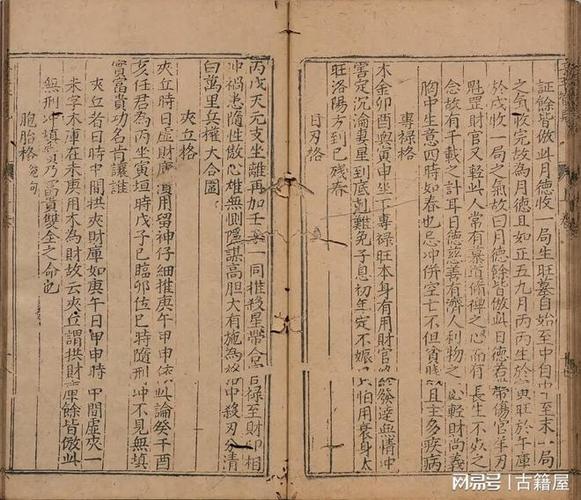 証餘皆倣此月德收一局生旺墓自始至中自中至末一局
之氣收完故為月德且如正五九月丙丙生於寅旺於午庫
於戌收一局之氣故曰月德餘皆倣此日德若帶傷官羊刃
魁罡財官又輕此人常有慕道脩禅之心而有長生不奴之
念故有千載之計耳日德慈善有濟人利物之心輕財尚義
胸中生意四時如春也忌冲併空亡不但貧賤且主多疾病
專祿格
木金卯酉與寅申坐下專祿旺本身有用財官終發達無情冲
害定沉淪妻星到底尅難免子息初年定不娠只怕用衰身太
旺洛陽方到已残春
日刃格
丙戊天元支坐離再加壬癸一同推殺星帶合官祿至財印相
冲禍患隨性傲心雄無惻隱謀高胆大有施為格中殺刃分清
白萬里兵權大合圖
夾丘格
夾丘時日虛財庫須用留神仔細推庚午甲申依此論癸酉
亥任君為丙坐寅垣時戊子已臨卯位巳時隨刑冲不見無填
實富貴功名肯讓誰
夾丘者日時中間拱夾財庫如庚午日甲申時中間虛夾一
未字木庫在未庚用木為財故云夾丘謂拱財庫餘皆倣此
無刑冲填實乃富貴雙全之命也
胞胎格
搜狐号@古籍屋